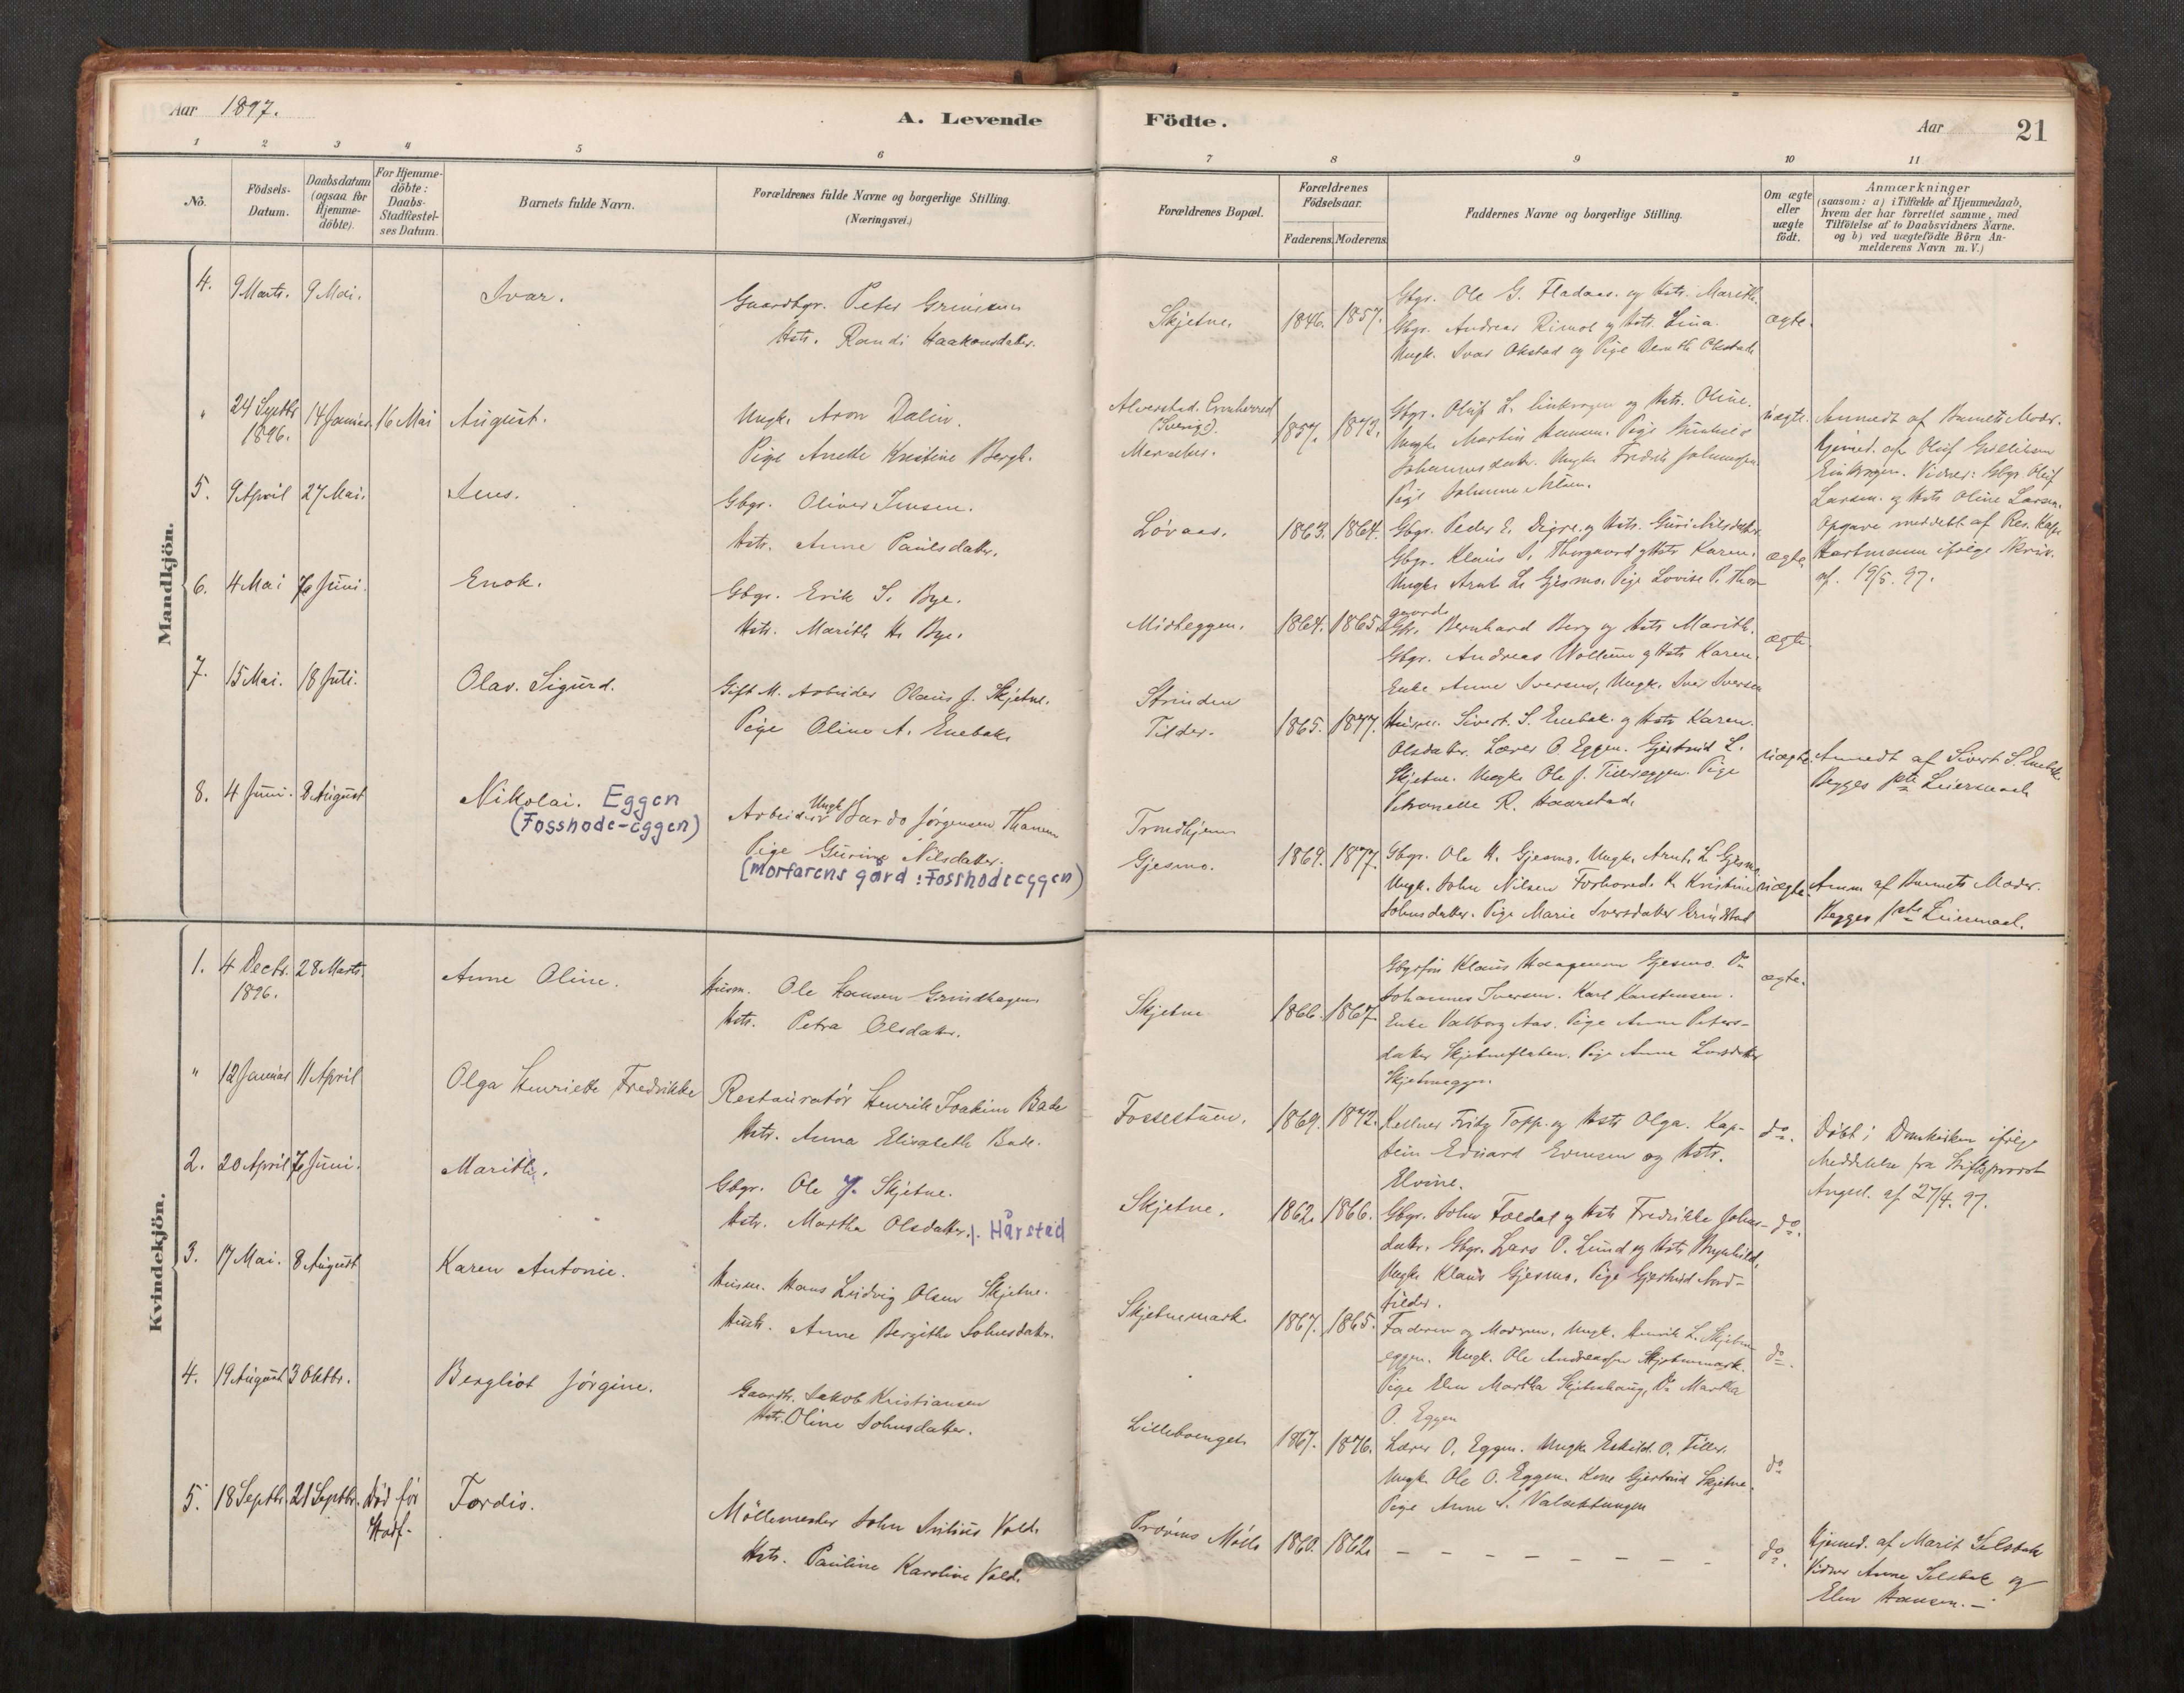 Aar 1897.
A. Levende
Födte.
Aar
21
1 2 3 4 5 6
7 8 9 10 11
No.
Födsels-
Datum.
Daabsdatum
(ogsaa for
Hjemme-
döbte).
For Hjemme-
döbte:
Daabs-
Stadfæstel-
ses Datum.
Barnets fulde Navn.
Forældrenes fulde Navne og borgerlige Stilling.
(Næringsvei.)
Forældrenes Bopæl.
Forældrenes
Födselsaar.
Faderens. Moderens.
Faddernes Navne og borgerlige Stilling.
Om ægte
eller
uægte
födt.
Anmærkninger
(saasom: a) i Tilfælde af Hjemmedaab,
hvem der har forrettet samme, med
Tilföielse af to Daabsvidners Navne.
og b) ved uægtefödte Börn An-
melderens Navn m. V.)
Mandkjön.
4. 9 Marts. 9 Mai. Ivar.
Gaardbgr. Peter
Hstr. Randi Haakonsdatter.
Skjetne. 1846. 1857.
Gbgr. Ole G. Fladaas. og Hstr. Marith.
Gbgr. Andreas Rimol og Hstr. Lina.
Ungk. Ivar Okstad og Pige Okstad
ægte.
" 24 Septbr 1896. 14 Januar. 16 Mai August.
Ungk. Aron Dalin.
Pige Anette Kristine Bergh.
(Sverige). 1857. 1872.
Gbgr. Oluf L. og Hstr. Oline.
Ungk. Martin Hansen. Pige
Johannesdatter. Ungk. Fredrik
Pige
uægte.
Anmedt af Barnets Moder.
Hjemmed. af Oluf
Vidner: Gbgr. Oluf
Larsen. og Hstr Oline Larsen.
Opgave meddelt af Res. Kap.
Hartmann ifølge Skriv.
af. 19/5. 97.
5. 9 April 27 Mai. Jens.
Gbgr. Oliver Jensen.
Hstr. Anne Paulsdatter.
Løvaas. 1863. 1864.
Gbgr. Peder E. Digre. og Hstr. Guri Nilsdatter
Gbgr. Klaus S. Thorgaard og Hstr Karen.
Ungk. Arnt L. Gjesmo. Pige Lovise P. Thor-
gaard.
ægte.
6. 4 Mai 7 Juni. Enok.
Gbgr. Erik S. Bye.
Hstr. Marith H. Bye.
Midteggen. 1864. 1865.
Bernhard Berg og Hstr Marith.
Gbgr. Andreas Wollum og Hstr Karen.
Enke Anne Iversen, Ungk. Iver Iversen
ægte.
7. 15 Mai. 18 Juli. Olav. Sigurd.
Gift M. Arbeider Olaus J. Skjetne.
Pige Oline A. Enebak.
Strinden
Tilder. 1865. 1877.
Husm. Sivert. S. Enebak. og Hstr Karen.
Olsdatter. Lærer O. Eggen. Gjertrud L.
Skjetne. Ungk. Ole J. Tillereggen. Pige
Petronelle R. Haarstad.
uægte.
Anmedt af Sivert S. Enebak
Begges 1ste Leiermaal
8. 4 Juni. 8 August Nikolai. Eggen
(Fosshode-eggen)
Arbeider Ungk. Bardo Jørgensen
Pige Gurine Nilsdatter.
(morfarens gård: Fosshodeeggen)
Trondhjem
Gjesmo. 1869. 1877.
Gbgr. Ole H. Gjesmo. Ungk. Arnt. L. Gjesmo.
Ungk. John Nilsen Forhoved. K. Kristine
Johnsdatter. Pige Marie Iversdatter Grindstad
uægte.
Anm. af Barnets Moder.
Begges 1ste Leiermaal.
Kvindekjön.
1. 4 Decbr. 1896. 28 Marts Anne Oline.
Husm. Ole Hansen Grindhagen
Hstr. Petra Olsdatter.
Skjetne 1866. 1867.
Klaus Haagensen Gjesmo. Do
Johannes Iversen. Karl Karstensen.
Enke Valborg Aas. Pige Anne Peters-
datter Skjetneflaten. Pige Anne Larsdatter
Skjetneeggen.
ægte.
" 12 Januar 11 April Olga Henriette Fredrikke
Restauratør Henrik Joakim Bade
Hstr. Anna Elisabeth Bade.
Fossestuen. 1869. 1872.
Kellner Fritz Topp. og Hstr Olga. Kap-
tein Eduard Evensen og Hstr.
Elvine.
do.
Døbt i Domkirken ifølge
Meddelelse fra Stiftsprovst
Angell. af 27/4. 97.
2. 20 April 7 Juni. Marith.
Gbgr. Ole J. Skjetne.
Hstr. Martha Olsdatter. f. Hårstad
Skjetne. 1862. 1866.
Gbgr. John Foldal og Hstr Fredrikke Johns-
datter. Gbgr. Lars O. Lund og Hstr Brynhild.
Ungk. Klaus Gjesmo. Pige Gjertrud Nord-
tilder.
do.
3. 17 Mai. 8 August Karen Antonie.
Husm. Hans Ludvig Olsen Skjetne.
Hustr. Anne Bergitte Johnsdatter.
Skjetnemark. 1867. 1865.
Faderen og Moderen. Ungk. Henrik L. Skjetne-
eggen. Ungk. Ole Andreassen Skjetnemark.
Pige Elen Martha Skjetnehaug, Do Martha
O. Eggen
do.
4. 19 August 3 Oktbr. Bergliot Jørgine.
Gaardbr. Jakob Kristiansen
Hstr. Oline Johnsdatter.
Lillebvenget. 1867. 1876.
Lærer O. Eggen. Ungk. Eskild. O. Tiller.
Ungk. Ole O. Eggen. Kone Gjertrud Skjetne.
Pige Anne S.
do
5. 18 Septbr. 21 Septbr. Død før Stadf. Tordis.
Møllemester John Vold.
Hstr. Pauline Karoline Vold.
Mølle 1860. 1862.
– – – – – – – –
do.
Hjemmed. af Marit Selsbak
Vidner Anne Selsbak og
Elen Hansen.–